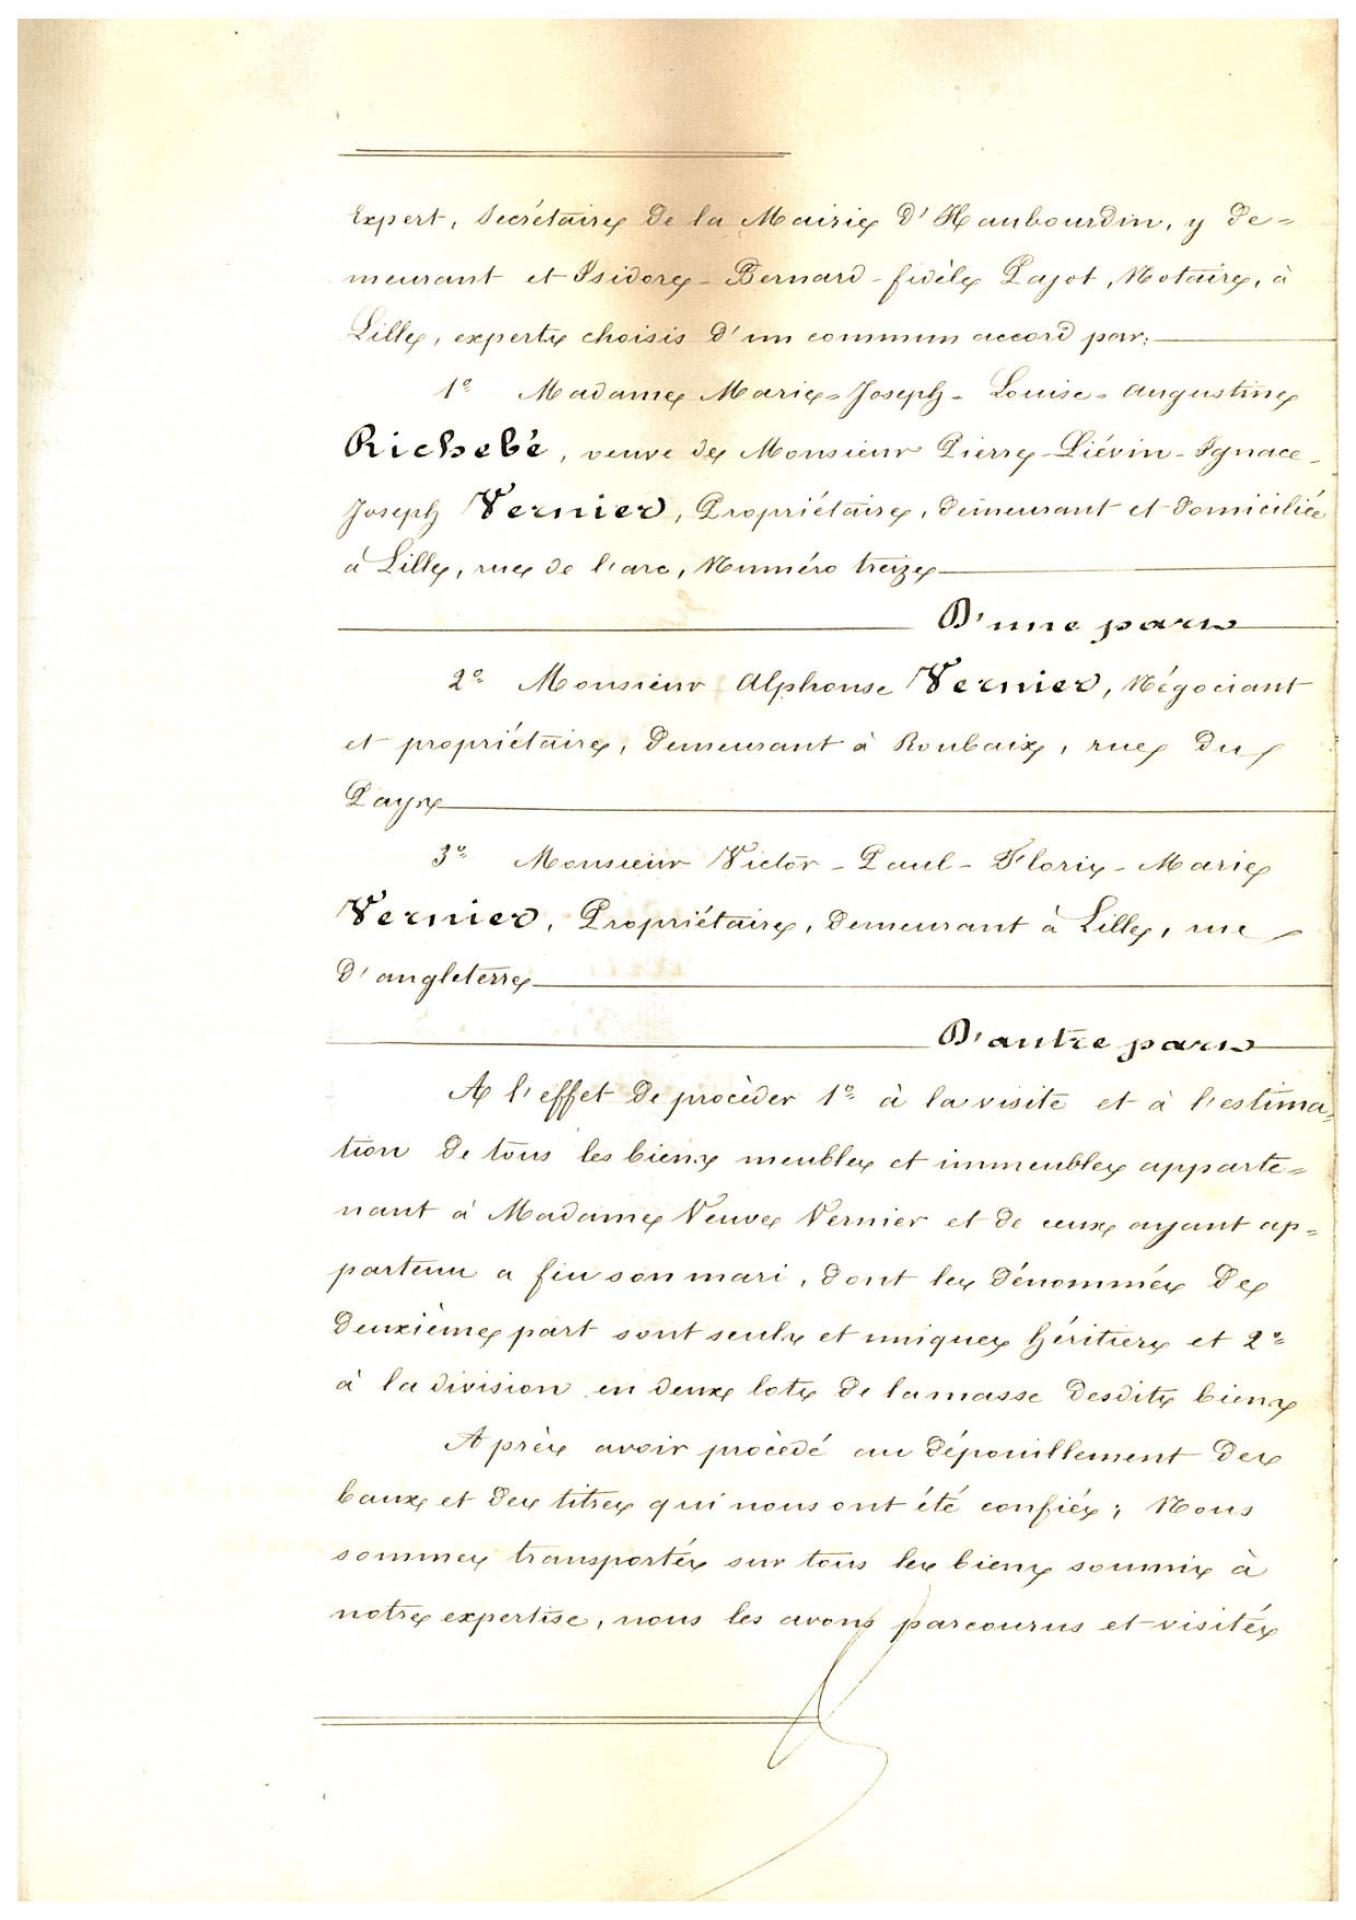 Expert, Secrétaire de la Mairie d'Haubourdin, y de=
meurant et Isidore-Bernard-fidèle Pajot, Notaire, à
Lille, experts choisis d'un commun accord par:
1º Madame Marie-Joseph-Louise-augustine
Richebé, veuve de Monsieur Pierre-Liévin-Ignace-
Joseph Vernier, Propriétaire, demeurant et domiciliée
à Lille, rue de l'arc, Numéro treize
D'une part
2º Monsieur Alphonse Vernier, Négociant
et propriétaire, demeurant à Roubaix, rue du
Pays
3º Monsieur Victor-Paul-Floris-Marie
Vernier, Propriétaire, demeurant à Lille, rue
d'angleterre
D'autre part
A l'effet de procèder 1º à la visite et à l'estima=
tion de tous les biens meubles et immeubles apparte=
nant à Madame Veuve Vernier et de ceux ayant ap=
partenu a feu son mari, dont les dénommés de
deuxième part sont seuls et uniques héritiers et 2º
à la division en deux lots de la masse desdits biens
Après avoir procèdé au dépouillement des
baux et des titres qui nous ont été confiés; Nous
sommes transportés sur tous les biens soumis à
notre expertise, nous les avons parcourus et visités